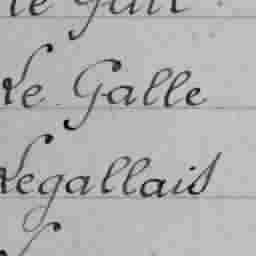 le Gall
Le Galle
Legallais